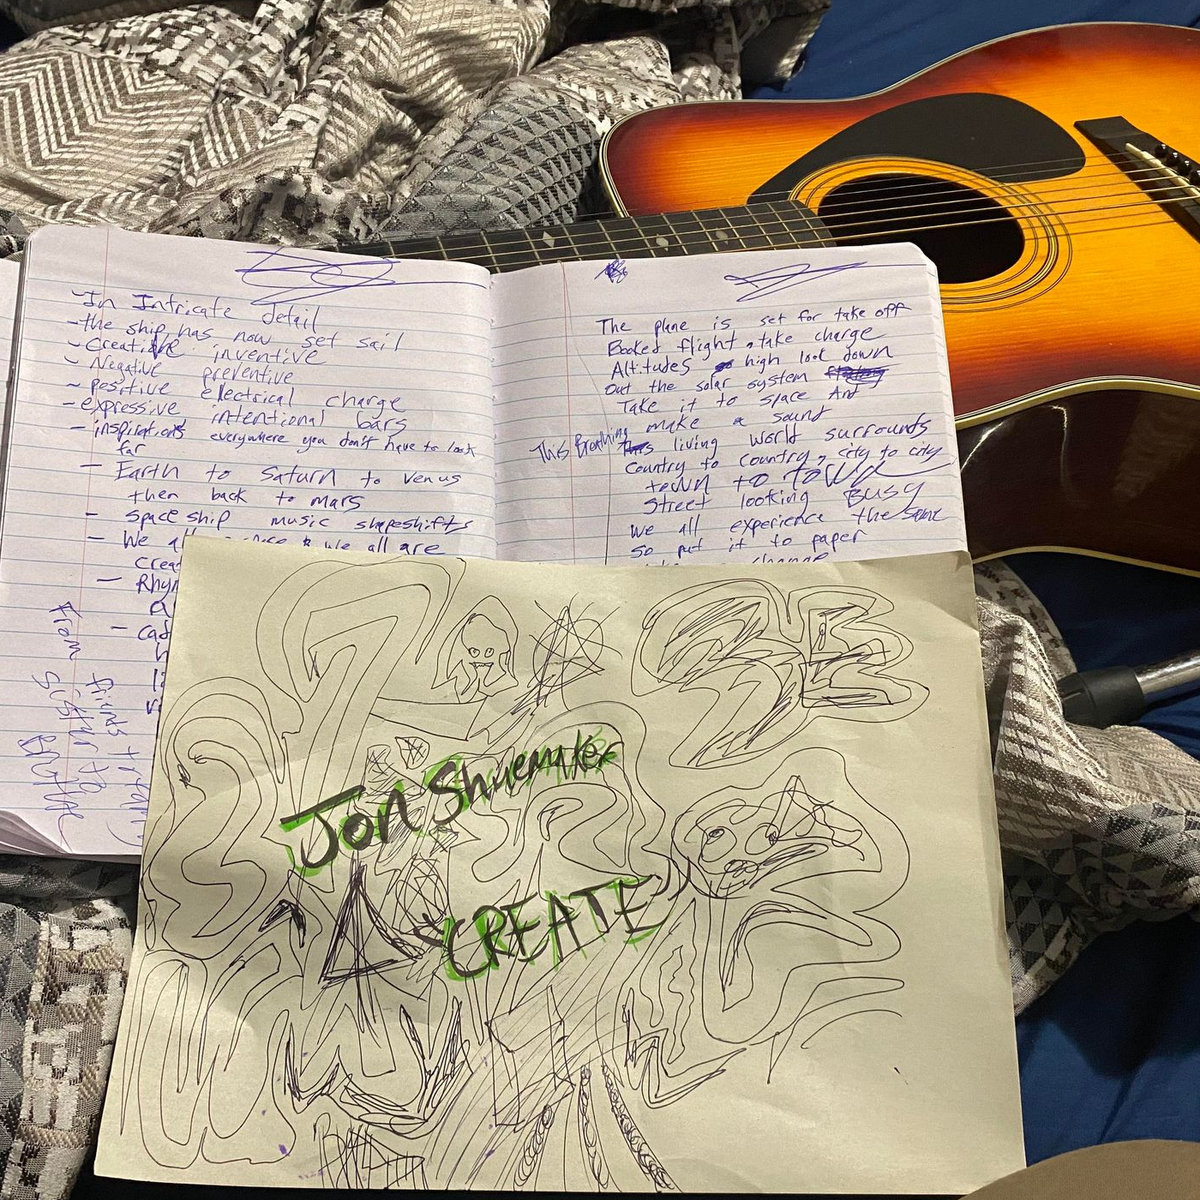 -In Intricate detail
-the ship has now set sail
-Creative inventive
~ Negative preventive
~ positive electrical charge
-expressive intentional bars
- inspirations everywhere you don't have to look
far
- Earth to Saturn to Venus
then back to mars
- Space ship music shapeshifts
- We all & we all are
- Rhy
From sister to Brother
The plane is set for take off
Booked flight, take charge
Altitudes high look down
Out the solar system
Take it to space And
make a sound
This Breathing living world surrounds
Country to country, city to city
town to town
Street looking Busy
We all experience the same
so put it to paper
change
Jon Shuemaker
CREATE